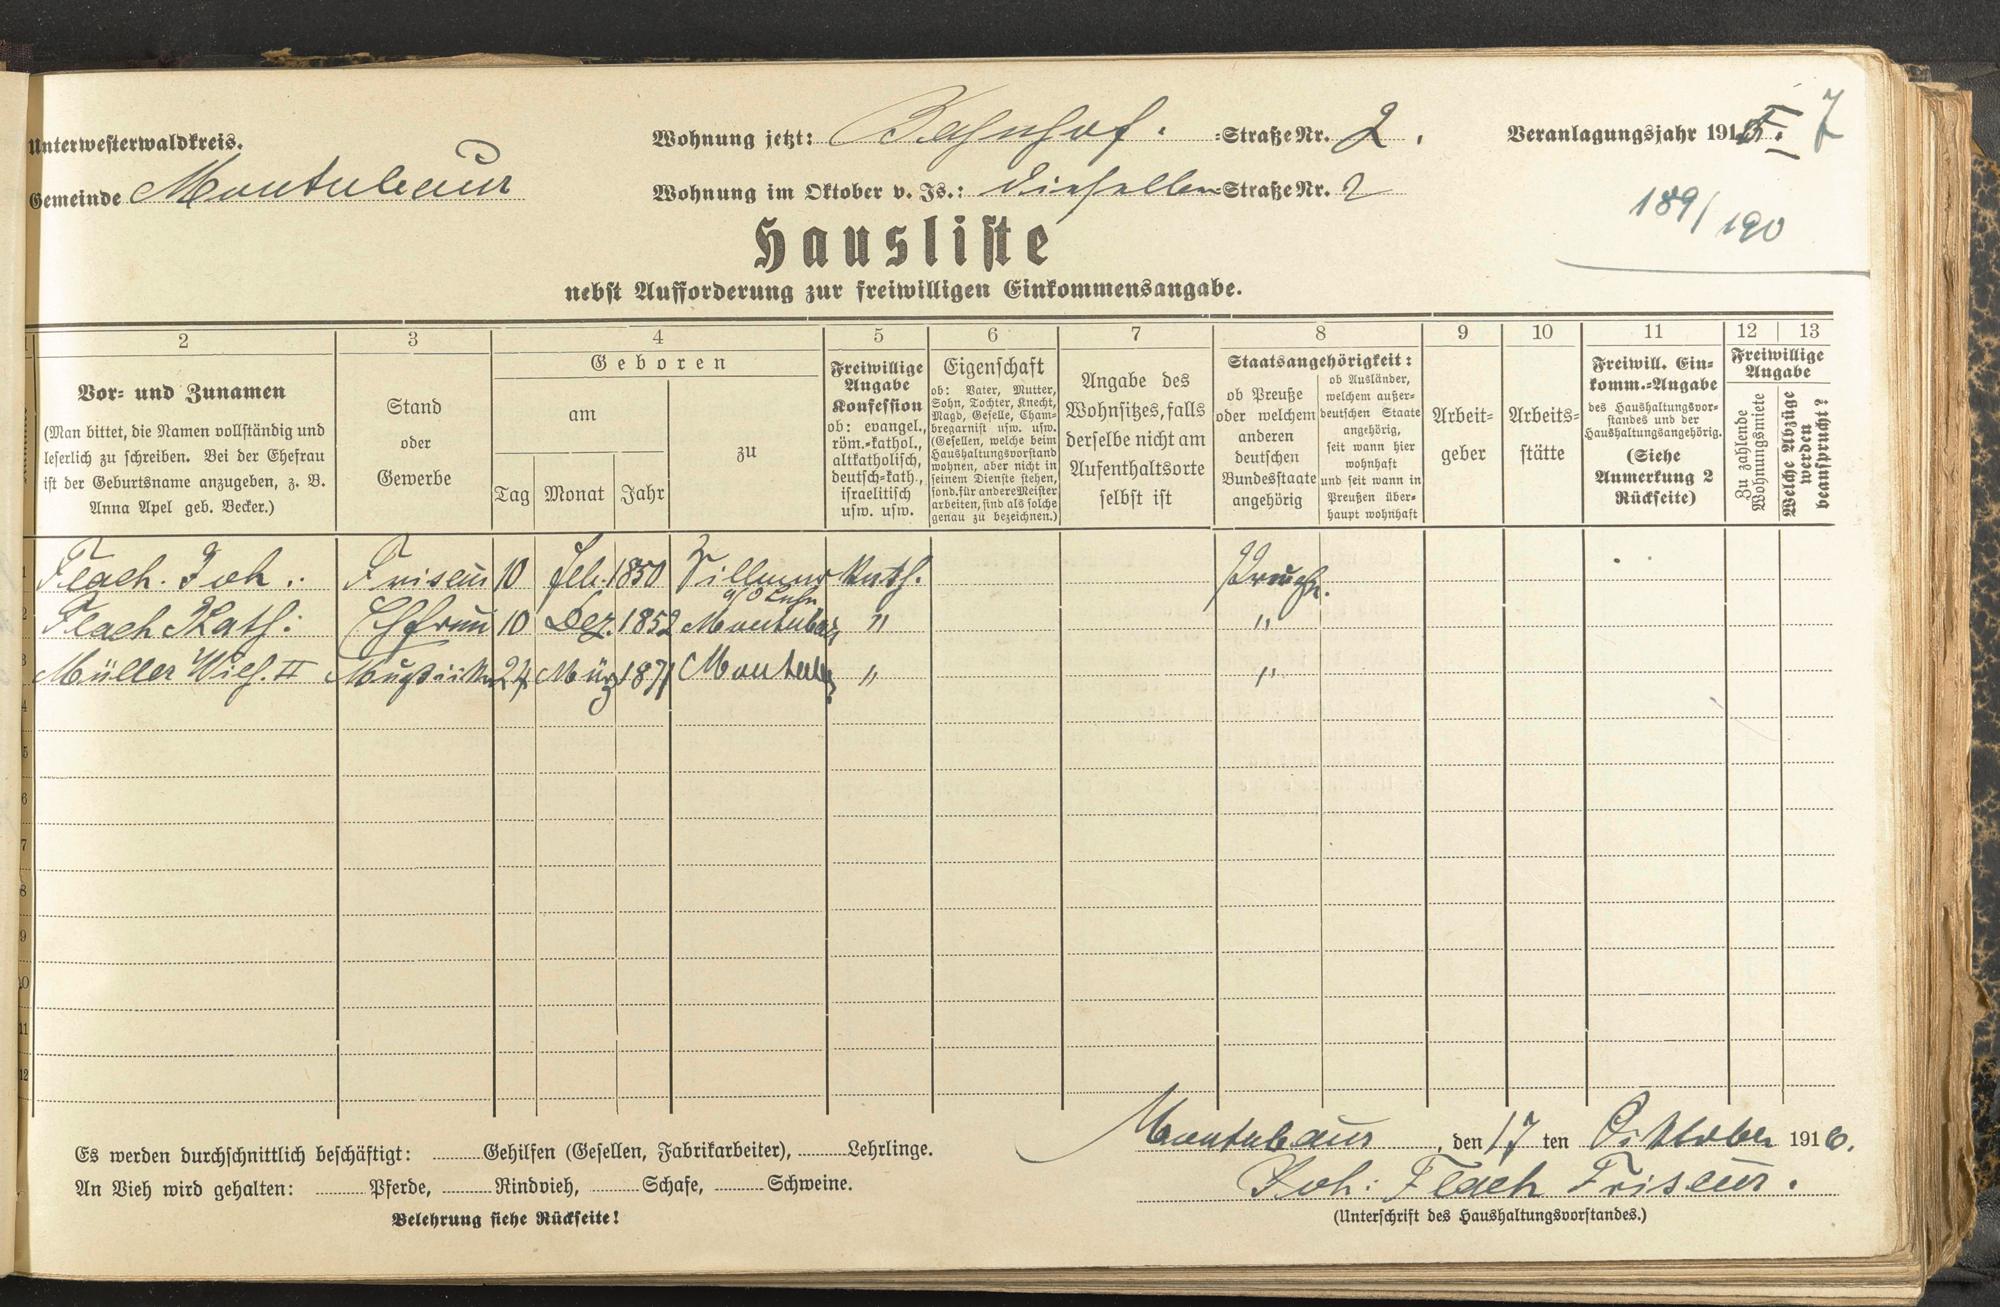 Unterwesterwaldkreis.
Gemeinde Montabaur
Wohnung jetzt: Bahnhof. =Straße Nr. 2.
Wohnung im Oktober v. Js.: dieselbe =Straße Nr. 2
Veranlagungsjahr 191 7
189/190
Hausliste
nebst Aufforderung zur freiwilligen Einkommensangabe.
2 3 4 5 6 7 8 9 10 11 12 13
Vor- und Zunamen
(Man bittet, die Namen vollständig und
leserlich zu schreiben. Bei der Ehefrau
ist der Geburtsname anzugeben, z. B.
Anna Apel geb. Becker.)
Stand
oder
Gewerbe
Geboren
am
Tag Monat Jahr
zu
Freiwillige
Angabe
Konfession
ob: evangel.,
röm.-kathol.,
altkatholisch,
deutsch-kath.,
israelitisch
usw. usw.
Eigenschaft
ob: Vater, Mutter,
Sohn, Tochter, Knecht,
Magd, Geselle, Cham-
bregarnist usw. usw.
(Gesellen, welche beim
Haushaltungsvorstand
wohnen, aber nicht in
seinem Dienste stehen,
sond. für andere Meister
arbeiten, sind als solche
genau zu bezeichnen.)
Angabe des
Wohnsitzes, falls
derselbe nicht am
Aufenthaltsorte
selbst ist
Staatsangehörigkeit:
ob Preuße
oder welchem
anderen
deutschen
Bundesstaate
angehörig
ob Ausländer,
welchem außer-
deutschen Staate
angehörig,
seit wann hier
wohnhaft
und seit wann in
Preußen über-
haupt wohnhaft
Arbeit-
geber
Arbeits-
stätte
Freiwill. Ein-
komm.-Angabe
des Haushaltungsvor-
standes und der
Haushaltungsangehörig.
(Siehe
Anmerkung 2
Rückseite)
Freiwillige
Angabe
Zu zahlende
Wohnungsmiete
Welche Abzüge
werden
beansprucht?
1 Flach. Joh. Friseur 10 Feb. 1850 Villmar a/d Lahn Kath. Preuße.
2 Flach Kath: Ehefrau 10 Dez. 1852 Montabaur " "
3 Müller Wilh. II Musiker 24 März 1871 Montab. " "
4
5
6
7
8
9
10
11
12
Es werden durchschnittlich beschäftigt: Gehilfen (Gesellen, Fabrikarbeiter), Lehrlinge.
An Vieh wird gehalten: Pferde, Rindvieh, Schafe, Schweine.
Belehrung siehe Rückseite!
Montabaur, den 17 ten Oktober 1916.
Joh: Flach Friseur.
(Unterschrift des Haushaltungsvorstandes.)